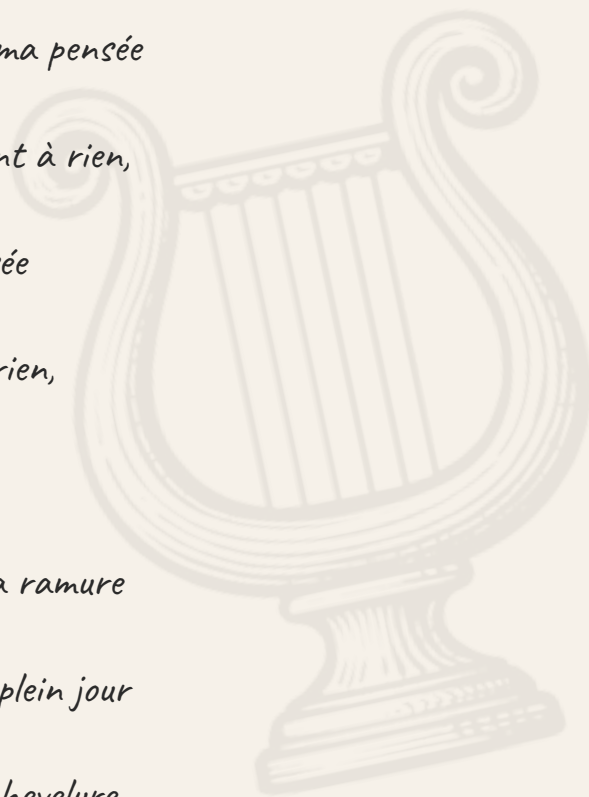 ma pensée
nt à rien,
ée
rien,
a ramure
plein jour
hevelure